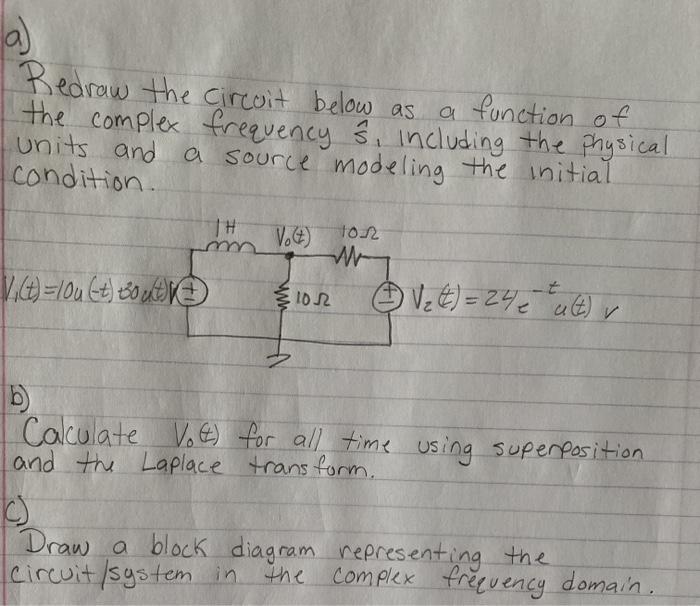 a)
Redraw the circuit below as a function of
the complex frequency ŝ, including the physical
units and a source modeling the initial
condition.
1H V₀(t) 10Ω
V₁(t)=10u(-t)+30u(t)V
10Ω
V₂(t)=24e⁻ᵗu(t) v
b)
Calculate V₀(t) for all time using superposition
and the Laplace transform.
c)
Draw a block diagram representing the
circuit/system in the complex frequency domain.